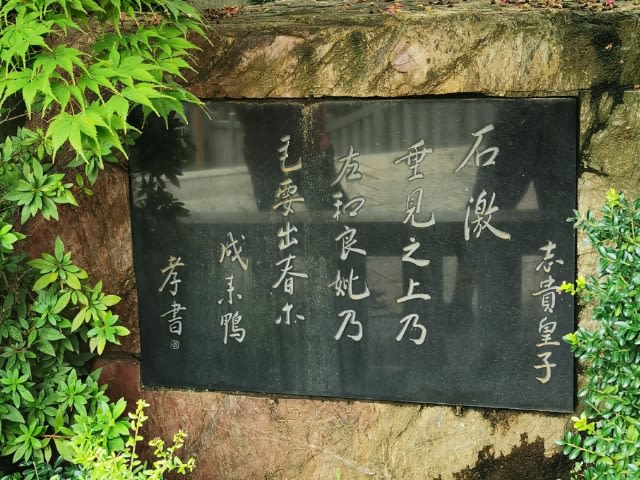 志貴皇子
石激
垂見之上乃
左和良妣乃
毛要出春尓
成来鴨
孝書